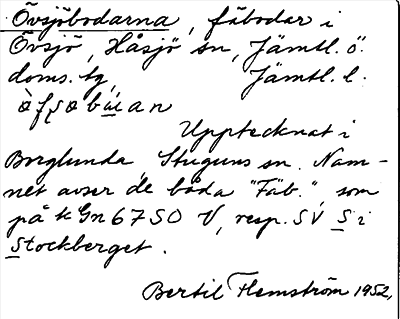 Övsjöbodarna, fäbodar i
Övsjö, Håsjö sn, Jämtl. ö.
doms. tg, Jämtl. l.
Upptecknat i
Borglunda, Stuguns sn. Nam-
net avser de båda "Fäb.", som
på k Gn 67 SO V, resp. SV S i
Stockberget.
Bertil Flemström 1952.